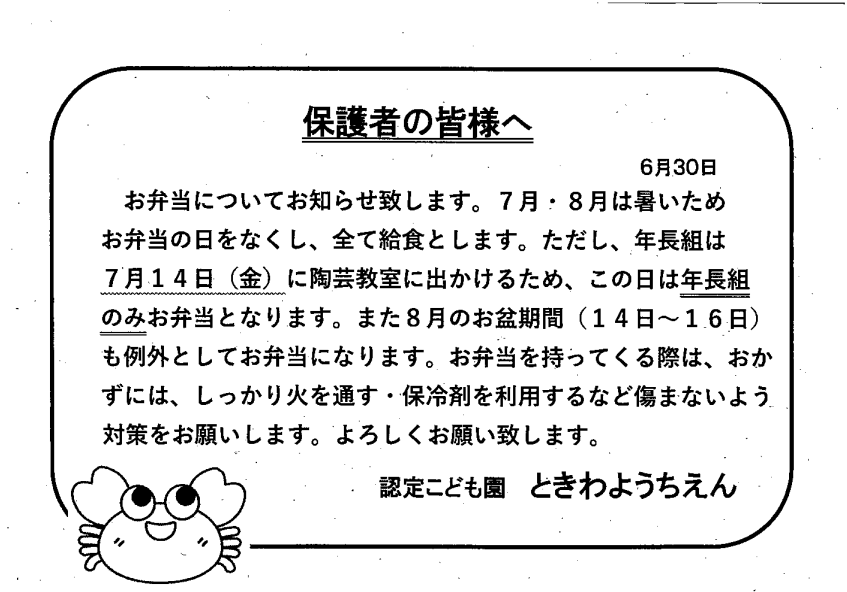 保護者の皆様へ
6月30日
お弁当についてお知らせ致します。７月・８月は暑いため
お弁当の日をなくし、全て給食とします。ただし、年長組は
７月１４日（金）に陶芸教室に出かけるため、この日は年長組
のみお弁当となります。また８月のお盆期間（１４日～１６日）
も例外としてお弁当になります。お弁当を持ってくる際は、おか
ずには、しっかり火を通す・保冷剤を利用するなど傷まないよう
対策をお願いします。よろしくお願い致します。
認定こども園　ときわようちえん